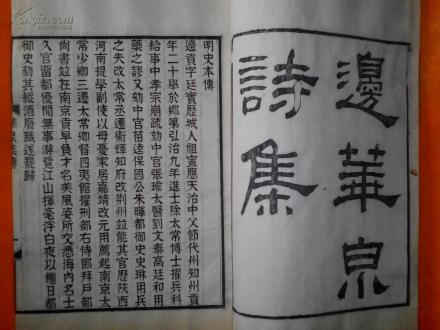 邊華泉
詩集
明史本傳
邊貢字廷實歷城人祖寧應天治中父節代州知州貢
年二十舉於鄉第弘治九年進士除太常博士擢兵科
給事中孝宗崩疏劾中官張瑜太醫劉文泰高廷和用
藥之謬又劾中官苗逵保國公朱暉都御史史琳用兵
之失改太常丞遷衛輝知府改荊州並能其官歷陝西
河南提學副使以母憂家居嘉靖改元用薦起南京太
常少卿三遷太常卿督四夷館擢刑部右侍郎拜戶部
尚書並在南京貢早負才名美風姿所交悉海內名士
久官留都優閒無事游覽江山揮毫浮白夜以繼日都
御史劾其縱酒廢職遂罷歸